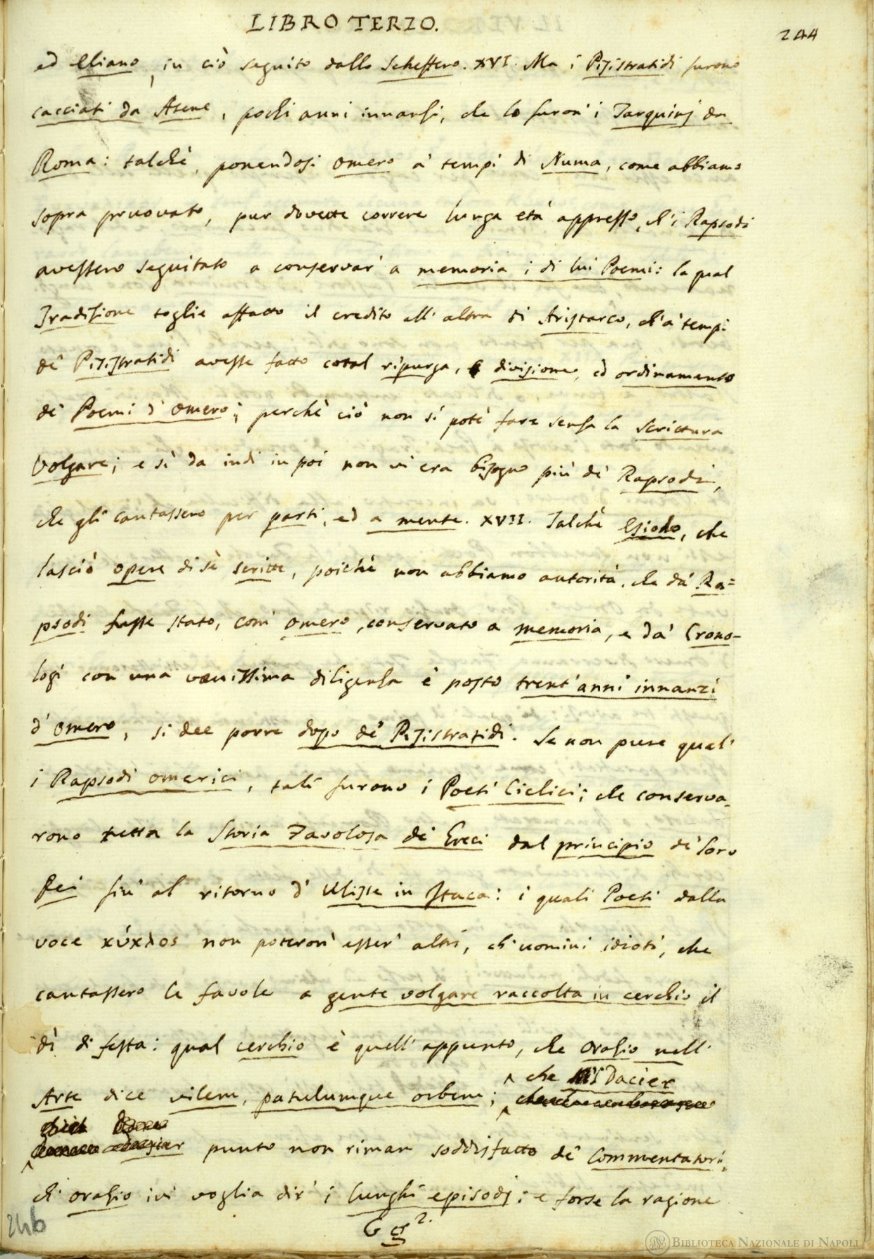 LIBRO TERZO.
244
ed Eliano, in ciò seguito dallo Scheffero. XVI. Ma i Pisistratidi furono
cacciati da Atene, pochi anni innanzi, che lo furon' i Tarquinj da
Roma: talchè, ponendosi Omero a' tempi di Numa, come abbiamo
sopra pruovato, pur dovette correre lunga età appresso, ch'i Rapsodi
avessero seguitato a conservar' a memoria i di lui Poemi: la qual
Tradizione toglie affatto il credito all' altra di Aristarco, ch'a' tempi
de' Pisistratidi avesse fatto cotal ripurga, divisione, ed ordinamento
de' Poemi d' Omero; perchè ciò non si potè fare senza la Scrittura
Volgare; e sì da indi in poi non vi era bisogno più de' Rapsodi,
che gli cantassero per parti, ed a mente. XVII. Talchè Esiodo, che
lasciò opere di sè scritte, poichè non abbiamo autorità, che da' Ra=
psodi fusse stato, com' Omero, conservato a memoria, e da' Crono-
logi con una vanissima diligenza è posto trent'anni innanzi
d' Omero, si dee porre dopo de' Pisistratidi. Se non pure quali
i Rapsodi omerici, tali furono i Poeti Ciclici; che conserva-
rono tutta la Storia Favolosa de' Greci dal principio de' loro
Dei fin' al ritorno d' Ulisse in Itaca: i quali Poeti dalla
voce κύκλος non poteron' esser' altri, ch'uomini idioti, che
cantassero le favole a gente volgare raccolta in cerchio il
dì di festa: qual cerchio è quell' appunto, che Orazio nell'
Arte dice vilem, patulumque orbem; che Dacier
punto non riman soddisfatto de' Commentatori,
ch' Orazio ivi voglia dir' i lunghi episodj: e forse la ragione
Gg 2.
246
BIBLIOTECA NAZIONALE DI NAPOLI